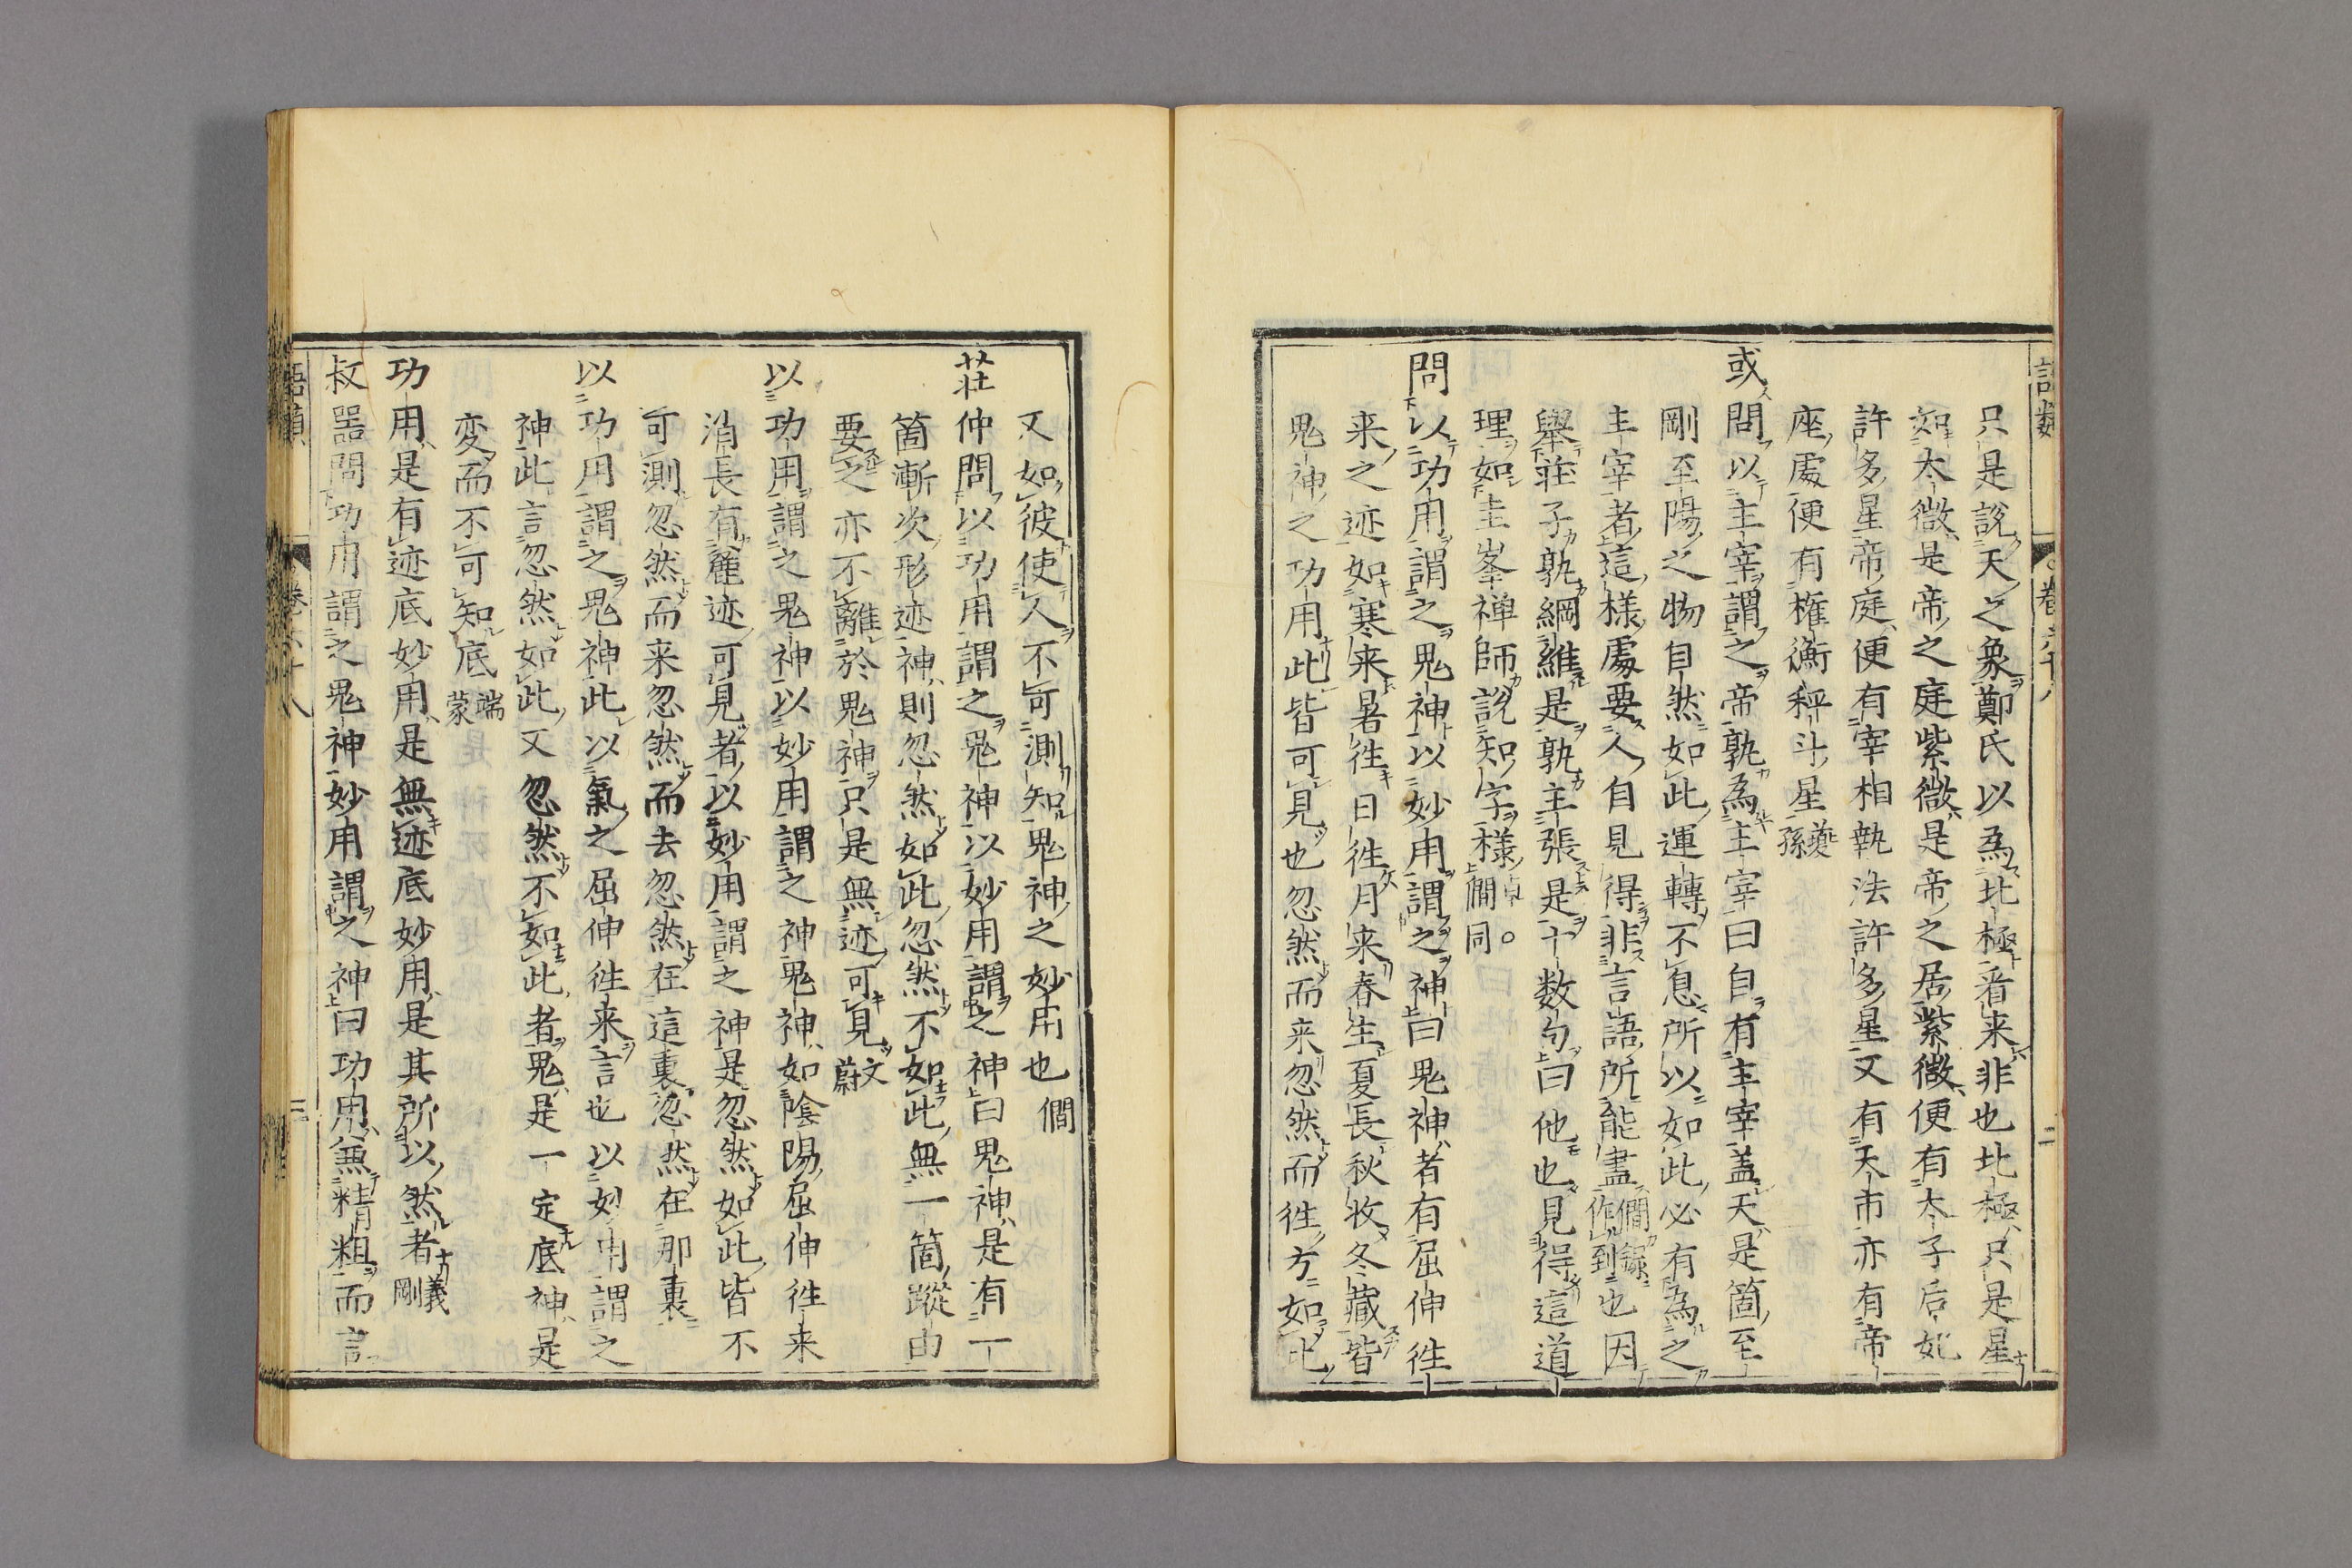 語類 卷六十八 二
只是說天之象鄭氏以為北極看来非也北極只是星
如太微是帝之庭紫微是帝之居紫微便有太子后妃
許多星帝庭便有宰相執法許多星又有天市亦有帝
座處便有權衡秤斗星 夔孫
或問以主宰謂之帝孰為主宰曰自有主宰盖天是箇至
剛至陽之物自然如此運轉不息所以如此必有為之
主宰者這様處要人自見得非言語所能盡 僩録作到 也因
舉莊子孰綱維是孰主張是十数句曰他也見得這道
理如圭峯禅師說知字様 卓 僩同
問以功用謂之鬼神以妙用謂之神曰鬼神者有屈伸徃
来之迹如寒来暑徃日徃月来春生夏長秋收冬藏皆
鬼神之功用此皆可見也忽然而来忽然而徃方如此
又如彼使人不可測知鬼神之妙用也 僩
莊仲問以功用謂之鬼神以妙用謂之神曰鬼神是有一
箇漸次形迹神則忽然如此忽然不如此無一箇蹤由
要之亦不離於鬼神只是無迹可見 文蔚
以功用謂之鬼神以妙用謂之神鬼神如陰陽屈伸徃来
消長有麄迹可見者以妙用謂之神是忽然如此皆不
可測忽然而来忽然而去忽然在這裏忽然在那裏
以功用謂之鬼神此以氣之屈伸徃来言也以妙用謂之
神此言忽然如此又忽然不如此者鬼是一定底神是
変而不可知底 端蒙
功用是有迹底妙用是無迹底妙用是其所以然者 義剛
叔器問功用謂之鬼神妙用謂之神曰功用兼精粗而言
語類 卷六十八 三